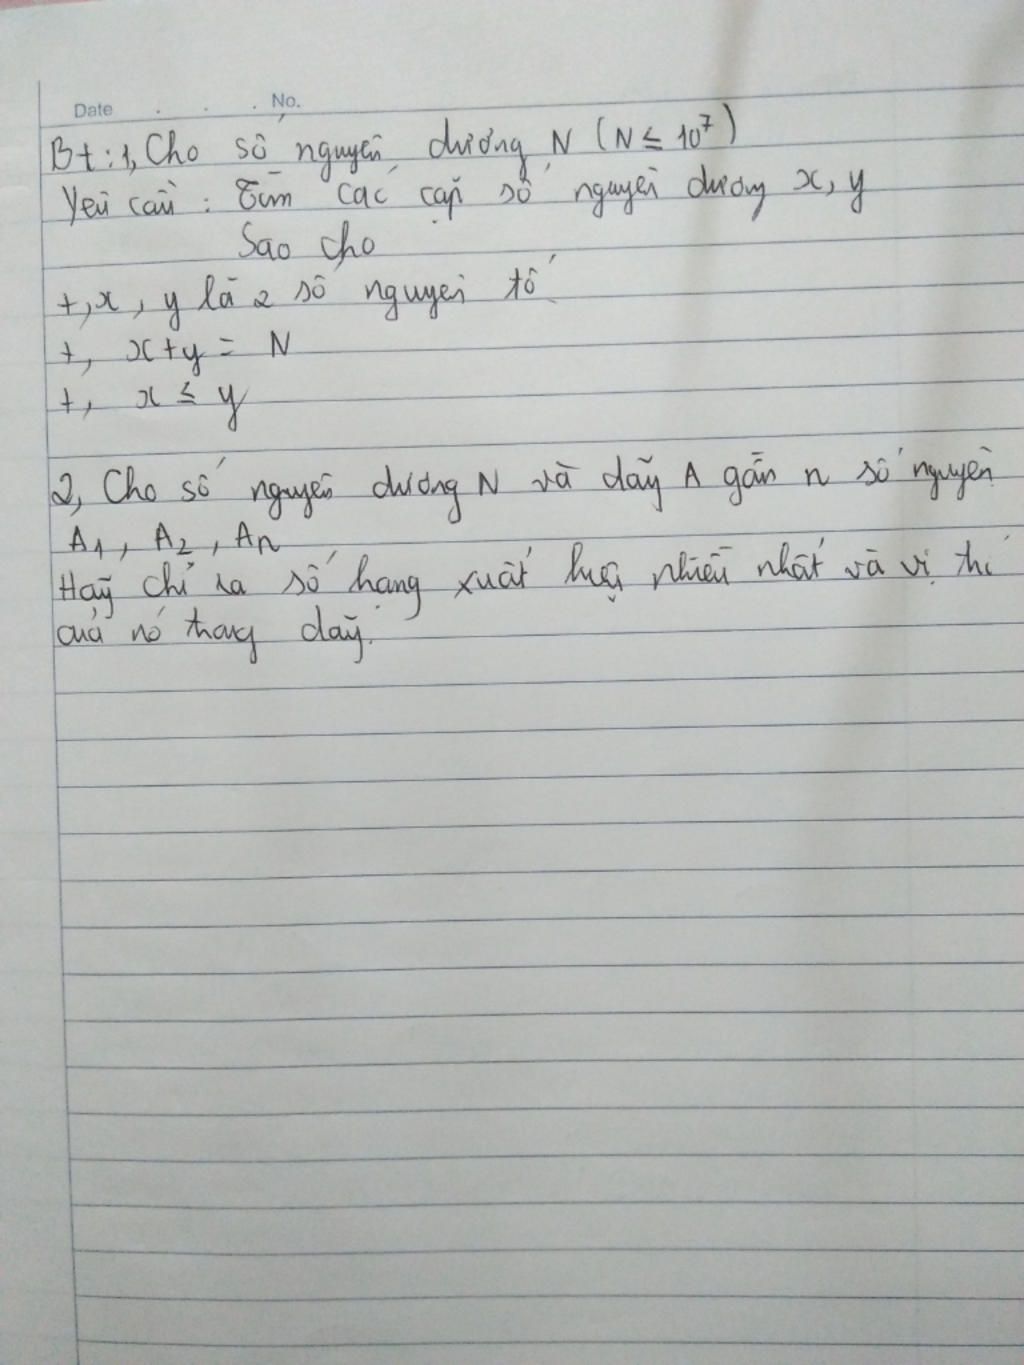 Date . . . No.
Bt : 1, Cho số nguyên dương N ( N ≤ 10⁷ )
Yêu cầu : Tìm các cặp số nguyên dương x, y
Sao cho
+, x , y là 2 số nguyên tố
+, x + y = N
+, x ≤ y
2, Cho số nguyên dương N và dãy A gần n số nguyên
A₁ , A₂ , An
Hãy chỉ ra số hạng xuất hiện nhiều nhất và vị trí
của nó trong dãy.